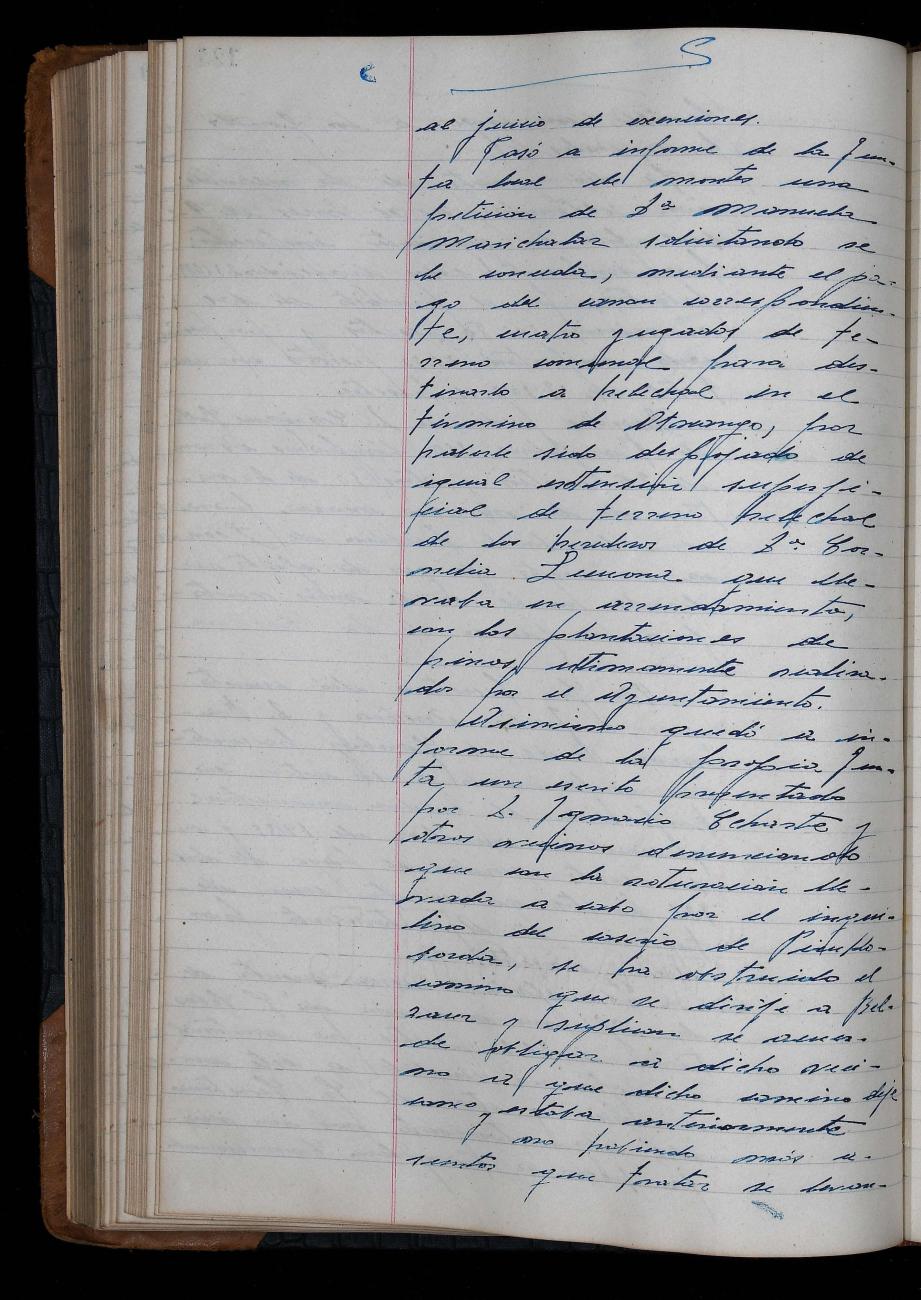 al juicio de exenciones.
Pasó a informe de la Jun-
ta local de montes una
petición de Dª Manuela
Marichalar solicitando se
le conceda, mediante el pa-
go del canon correspondien-
te, cuatro yugadas de te-
rreno comunal para des-
tinarlo a helechal en el
término de Otsango, por
haberle sido despojado de
igual extensión superfi-
cial de terreno helechal
de los herederos de Dª Cor-
nelia Lecuona que lle-
vaba en arrendamiento,
con las plantaciones de
pinos, ultimamente realiza-
das por el Ayuntamiento.
Asimismo quedó a in-
forme de la propia Jun-
ta un escrito presentado
por D. Ignacio Echarte y
otros vecinos denunciando
que con la roturación lle-
vada a cabo por el inqui-
lino del caserío de
borda, se ha obstruido el
camino que se dirije a Bel-
zaur y suplican se acuer-
de obligar a dicho veci-
no a que dicho camino deje
como estaba anteriormente
y no habiendo más a-
suntos que tratar se levan-